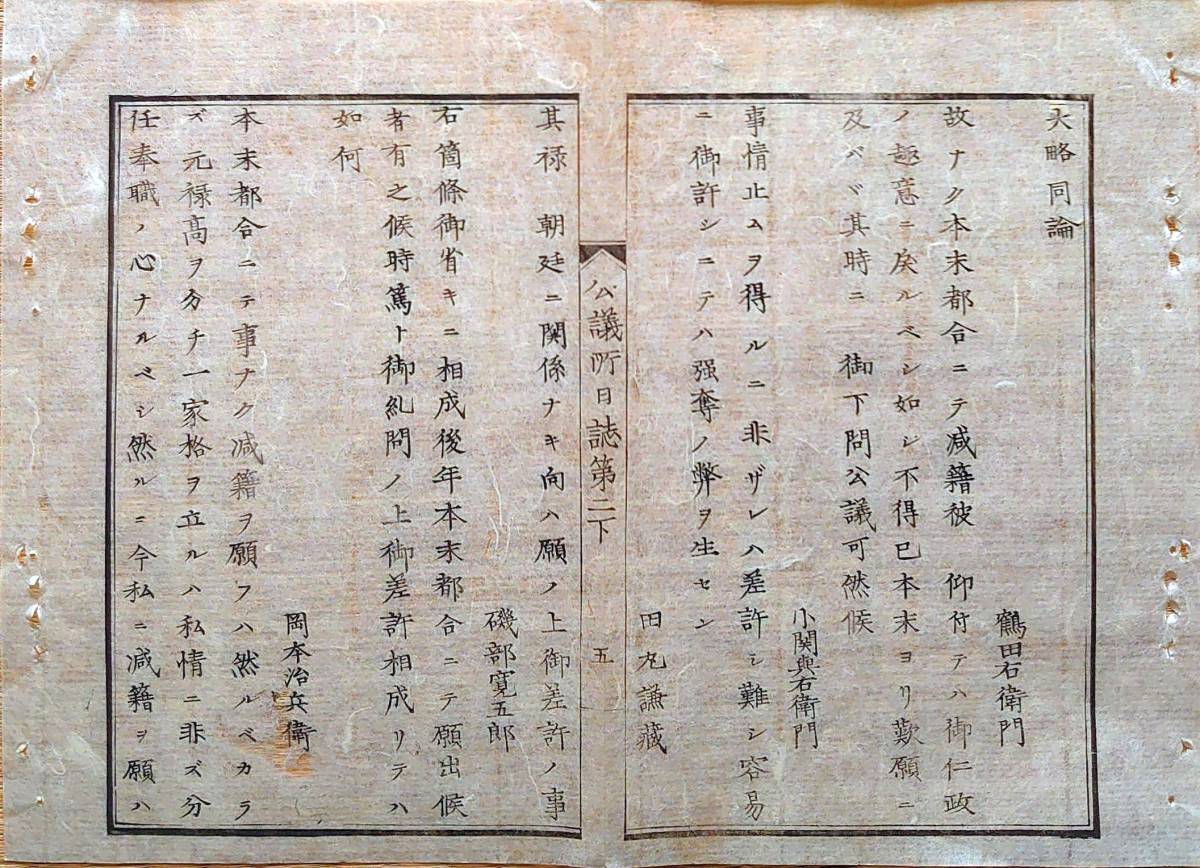 大略同論
鶴田右衛門
故ナク本末都合ニテ减籍彼　仰付テハ御仁政
ノ趣意ニ戻ルベシ如シ不得已本末ヨリ歎願ニ
及バヾ其時ニ　御下問公議可然候
小関與右衛門
事情止ムヲ得ルニ非ザレハ差許シ難シ容易
ニ御許シニテハ强奪ノ弊ヲ生セン
田丸謙藏
公議所日誌第二下　五
其禄　朝廷ニ関係ナキ向ハ願ノ上御差許ノ事
磯部寛五郎
右箇條御省キニ相成後年本末都合ニテ願出候
者有之候時篤ト御糺問ノ上御差許相成リテハ
如何
岡本治兵衛
本末都合ニテ事ナク减籍ヲ願フハ然ルベカラ
ズ元禄高ヲ分チ一家格ヲ立ルハ私情ニ非ズ分
任奉職ノ心ナルベシ然ルニ今私ニ减籍ヲ願ハ